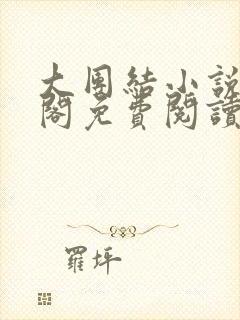 大團結小說
閣免費閱讀
羅坪